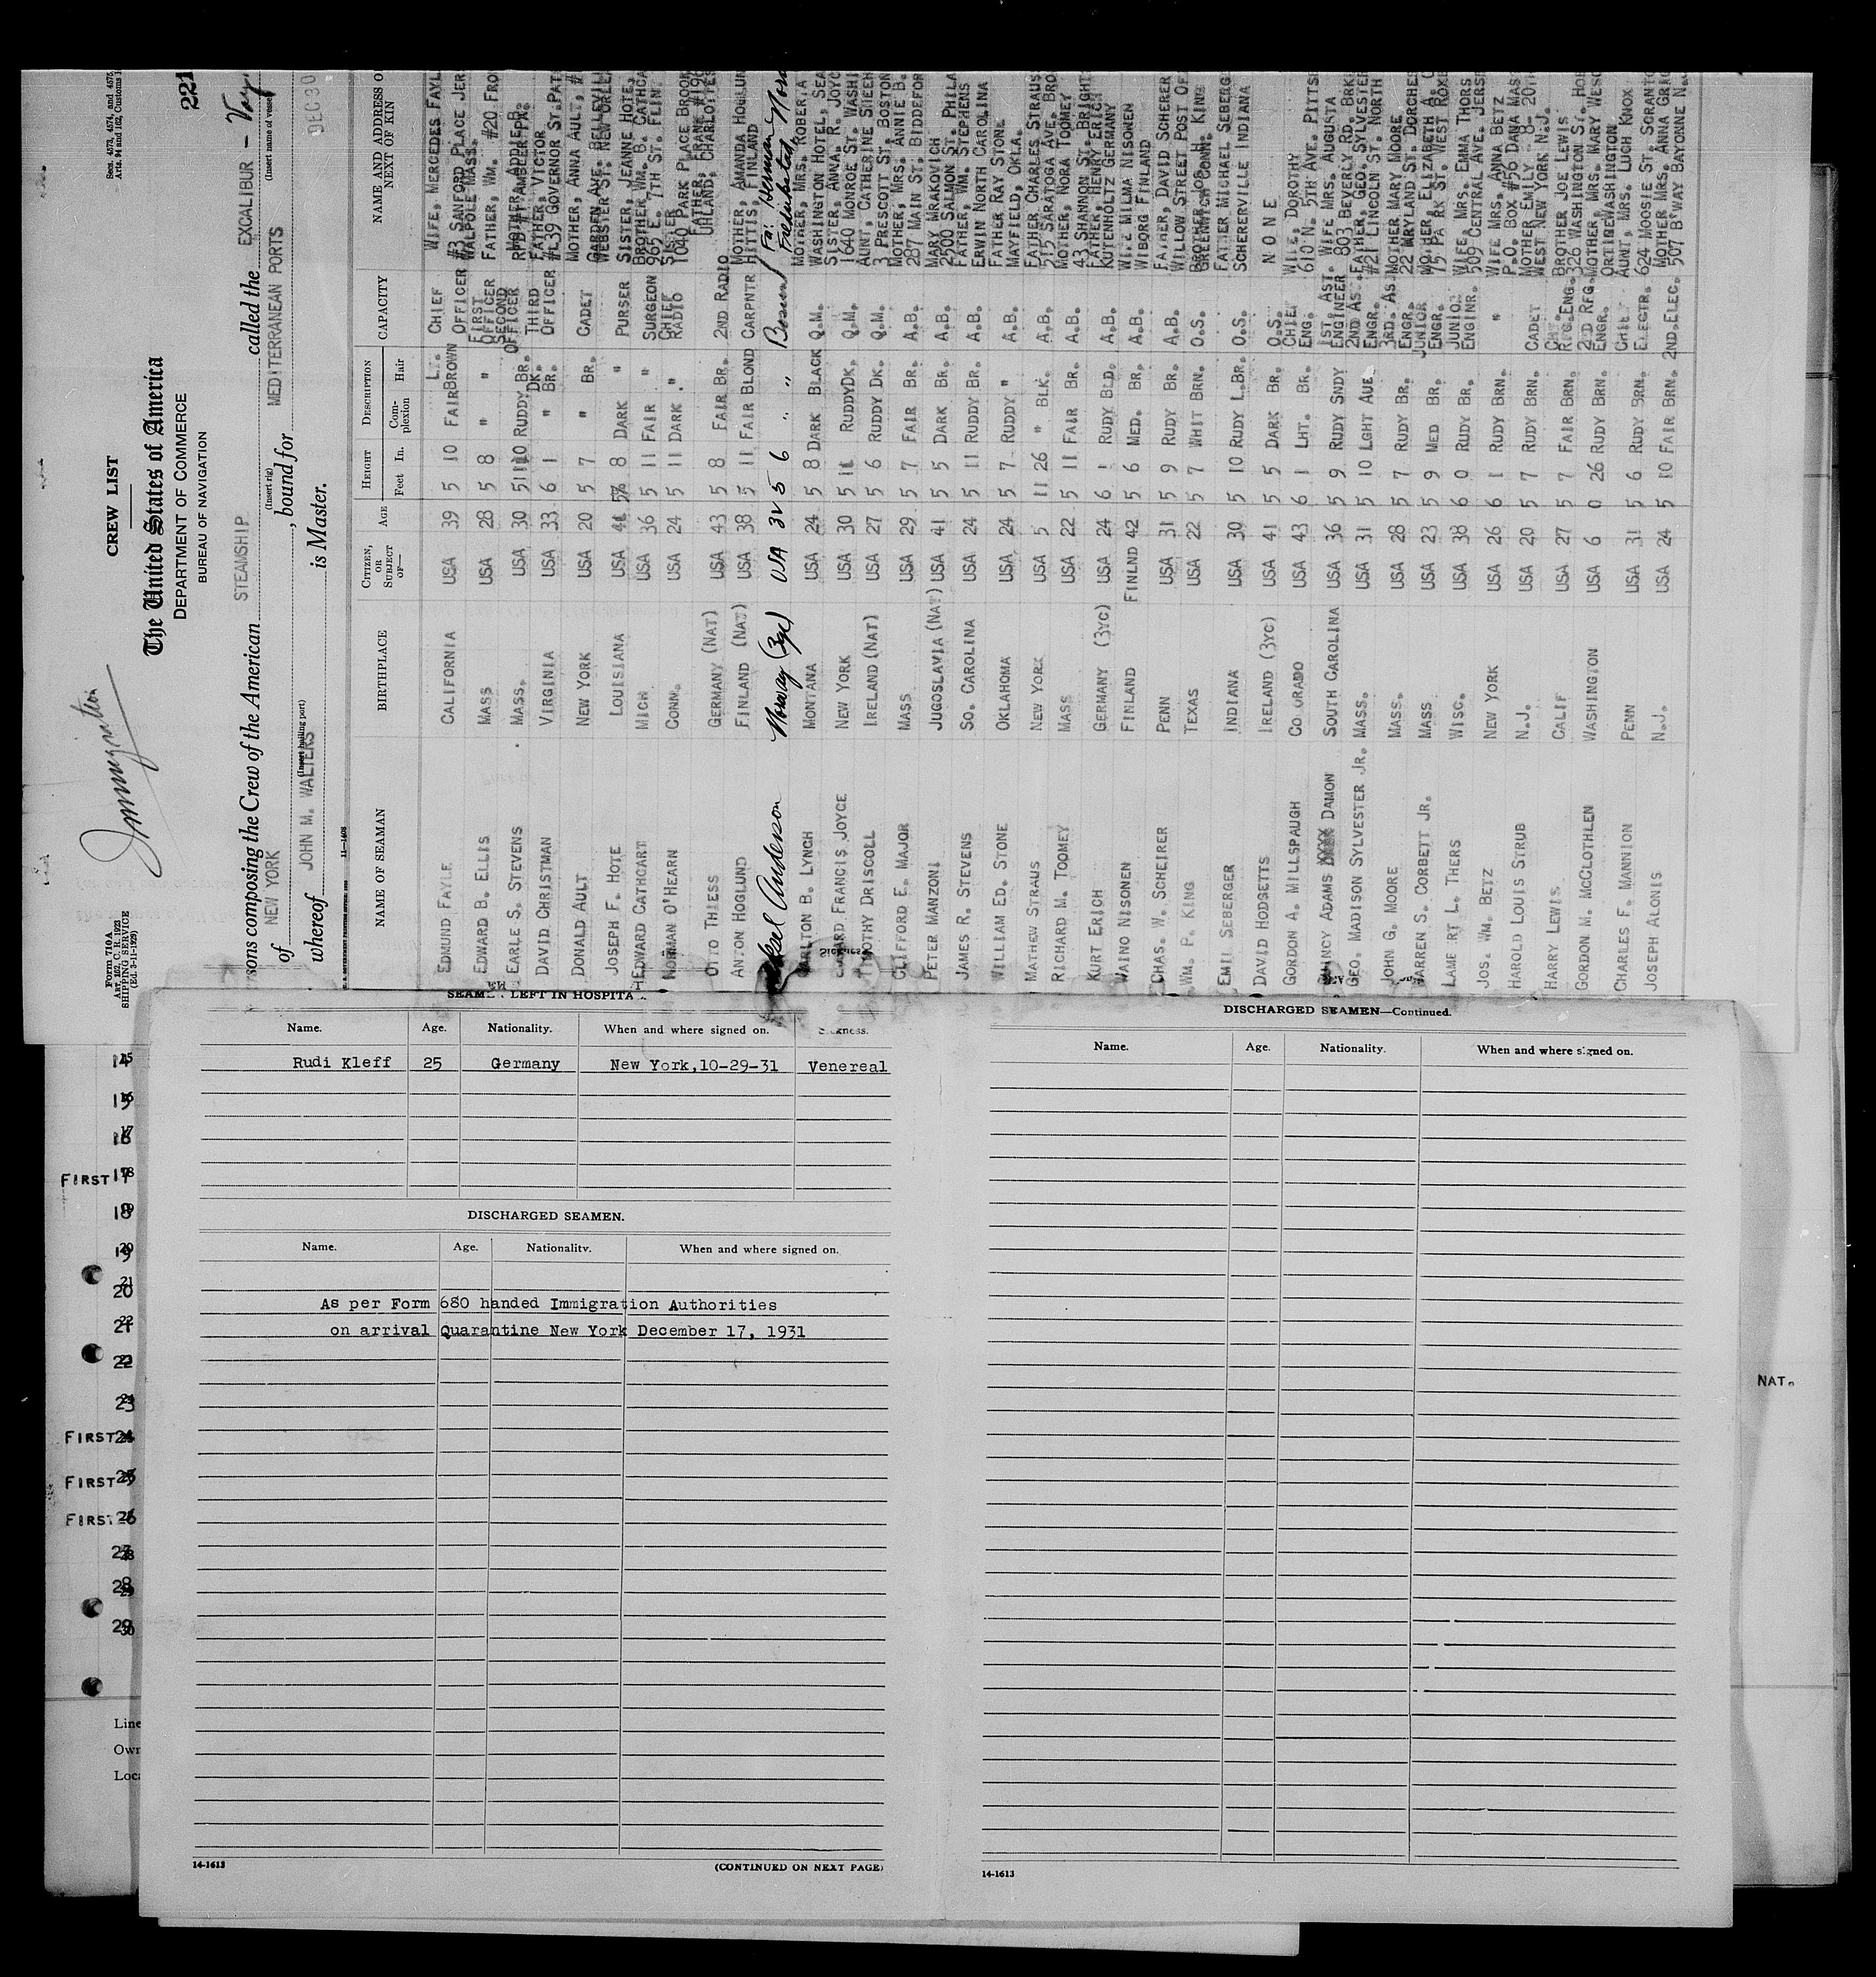 Immigration
Form 710 A
Art. 162, C. R. 1923
SHIPPING SERVICE
(Ed. 3-11-1929)
CREW LIST
Secs. 4573, 4574, and 4575,
221
The United States of America
DEPARTMENT OF COMMERCE
BUREAU OF NAVIGATION
sons composing the Crew of the American STEAMSHIP called the EXCALIBUR
(Insert rig) (Insert name of vessel)
of NEW YORK, bound for MEDITERRANEAN PORTS
(Insert hailing port)
whereof JOHN M. WALTERS is Master. DEC 30
NAME OF SEAMAN BIRTHPLACE CITIZEN, OR SUBJECT OF— AGE HEIGHT Feet In. DESCRIPTION Complexion Hair CAPACITY NAME AND ADDRESS O NEXT OF KIN
EDMUND FAYLE CALIFORNIA USA 39 5 10 FAIR LT. BROWN CHIEF OFFICER WIFE, MERCEDES FAYL #3 SANFORD PLACE JER
EDWARD B. ELLIS MASS USA 28 5 8 " " FIRST OFFICER WALPOLE MASS. FATHER, WM. #20 FRO
EARLE S. STEVENS MASS. USA 30 RUDDY BR. SECOND OFFICER
DAVID CHRISTMAN VIRGINIA USA 33 6 1 " DK. BR. THIRD OFFICER FATHER, VICTOR #L39 GOVERNOR ST. PAT
DONALD AULT NEW YORK USA 20 5 7 " BR. CADET MOTHER, ANNA AULT, #
JOSEPH F. HOTE LOUISIANA USA 8 DARK " PURSER WEBSTER ST. NEW ORLEA SISTER, JEANNE HOTE,
EDWARD CATHCART MICH USA 36 5 11 FAIR " SURGEON BROTHER WM. B. CATHCA 905 E. 7TH ST. FLINT
NORMAN O'HEARN CONN. USA 24 5 11 DARK " CHIEF RADIO SISTER 1040 PARK PLACE BROOK
OTTO THIESS GERMANY (NAT) USA 43 5 8 FAIR BR. 2ND RADIO FATHER, FRANZ UHLAND, CHARLOTTES
ANTON HOGLUND FINLAND (NAT) USA 38 5 11 FAIR BLOND CARPNTR MOTHER, AMANDA HOGLUN HITTIS, FINLAND
Aksel Anderson Norway (3yc) USA 32 5 6 " " Bosun Fa: Herman Fredrikstad, Norw
CARLTON B. LYNCH MONTANA USA 24 5 8 DARK BLACK Q.M. MOTHER, MRS. ROBERTA WASHINGTON HOTEL, SEA
EDWARD FRANCIS JOYCE NEW YORK USA 30 5 11 RUDDY DK. Q.M. SISTER, ANNA. R. JOYC 1640 MONROE ST. WASHI
TIMOTHY DRISCOLL IRELAND (NAT) USA 27 5 6 RUDDY DK. Q.M. AUNT, CATHERINE SHEEH 3 PRESCOTT ST. BOSTON
CLIFFORD E. MAJOR MASS USA 29 5 7 FAIR BR. A.B. MOTHER, MRS. ANNIE B. 287 MAIN ST. BIDDEFOR
PETER MANZONI JUGOSLAVIA (NAT) USA 41 5 5 DARK BR. A.B. MARY MRAKOVICH 2500 SALMON ST. PHILA
JAMES R. STEVENS SO. CAROLINA USA 24 5 11 RUDDY BR. A.B. FATHER, WM. STEPHENS ERWIN NORTH CAROLINA
WILLIAM ED. STONE OKLAHOMA USA 24 5 7 RUDDY " A.B. FATHER RAY STONE MAYFIELD, OKLA.
MATHEW STRAUS NEW YORK USA 5 11 26 " BLK. A.B. FATHER CHARLES STRAUS 515 SARATOGA AVE. BRO
RICHARD M. TOOMEY MASS USA 22 5 11 FAIR BR. A.B. MOTHER, NORA TOOMEY 43 SHANNON ST. BRIGHT
KURT ERICH GERMANY (3YC) USA 24 6 1 RUDDY BLD. A.B. FATHER, HENRY ERICH KUTENHOLTZ GERMANY
WAINO NISONEN FINLAND FINLND 42 5 6 MED. BR. A.B. WIFE MILMA NISONEN WIBORG FINLAND
CHAS. W. SCHEIRER PENN USA 31 5 9 RUDY BR. A.B. FATHER, DAVID SCHERER WILLOW STREET POST OF
WM. P. KING TEXAS USA 22 5 7 WHIT BRN. O.S. BROTHER JOB. H. KING GREENWICH CONN.
EMIL SEBERGER INDIANA USA 30 5 10 RUDY L.BR. O.S. FATHER MICHAEL SEBERG SCHERERVILLE INDIANA
DAVID HODGETTS IRELAND (3YC) USA 41 5 5 DARK BR. O.S. N O N E
GORDON A. MILLSPAUGH CO ORADO USA 43 6 1 LHT. BR. CHIEF ENG. WIFE, DOROTHY 610 N. 5TH AVE. PITTS
QUINCY ADAMS DAMON SOUTH CAROLINA USA 36 5 9 RUDY SNDY 1ST. AST. ENGINEER WIFE MRS. AUGUSTA 803 BEVERLY RD. BRK
GEO. MADISON SYLVESTER JR. MASS. USA 31 5 10 LGHT AUE. 2ND AS. ENGR. FATHER, GEO. SYLVESTER #21 LINCOLN ST. NORTH
JOHN G. MOORE MASS. USA 28 5 7 RUDY BR. 3RD. AS. ENGR. MOTHER MARY MOORE 22 MRYLAND ST. DORCHES
WARREN S. CORBETT JR. MASS USA 23 5 9 MED BR. JUNIOR ENGR. MOTHER, ELIZABETH A. C 75 PARK ST. WEST ROXB
LAME RT L. THERS WISC. USA 38 6 0 RUDY BR. JUNIOR ENGINR. WIFE, MRS. EMMA THORS 509 CENTRAL AVE. JERSE
JOS. WM. BETZ NEW YORK USA 26 6 1 RUDY BRN. " WIFE MRS. ANNA BETZ P.O. BOX #56 DANA MAS
HAROLD LOUIS STRUB N.J. USA 20 5 7 RUDY BRN. CADET MOTHER EMILY WEST NEW YORK N.J.
HARRY LEWIS CALIF USA 27 5 7 FAIR BRN. CHF. RFG. ENG. BROTHER JOE LEWIS 326 WASHINGTON ST. HOB
GORDON M. MCCLOTHLEN WASHINGTON USA 6 0 26 RUDY BRN. 2ND RFG. ENGR. MOTHER, MRS. MARY WESC WASHINGTON
CHARLES F. MANNION PENN USA 31 5 6 RUDY BRN. CHIEF ELECTR. AUNT, MRS. LUCH KNOX 624 MOOSIE ST. SCRANTO
JOSEPH ALONIS N.J. USA 24 5 10 FAIR BRN. 2ND. ELEC. MOTHER MRS. ANNA GRI 507 B'WAY BAYONNE N.
LEFT IN HOSPITA
Name. Age. Nationality. When and where signed on.
Rudi Kleff 25 Germany New York,10-29-31 Venereal
DISCHARGED SEAMEN.
Name. Age. Nationality. When and where signed on.
As per Form 680 handed Immigration Authorities
on arrival Quarantine New York December 17, 1931
14-1613 (CONTINUED ON NEXT PAGE)
DISCHARGED SEAMEN—Continued.
Name. Age. Nationality. When and where signed on.
14-1613
FIRST 17
18
19
20
21
22
23
FIRST
FIRST
FIRST 26
27
28
29
30
Line
Own
Loca
NAT.